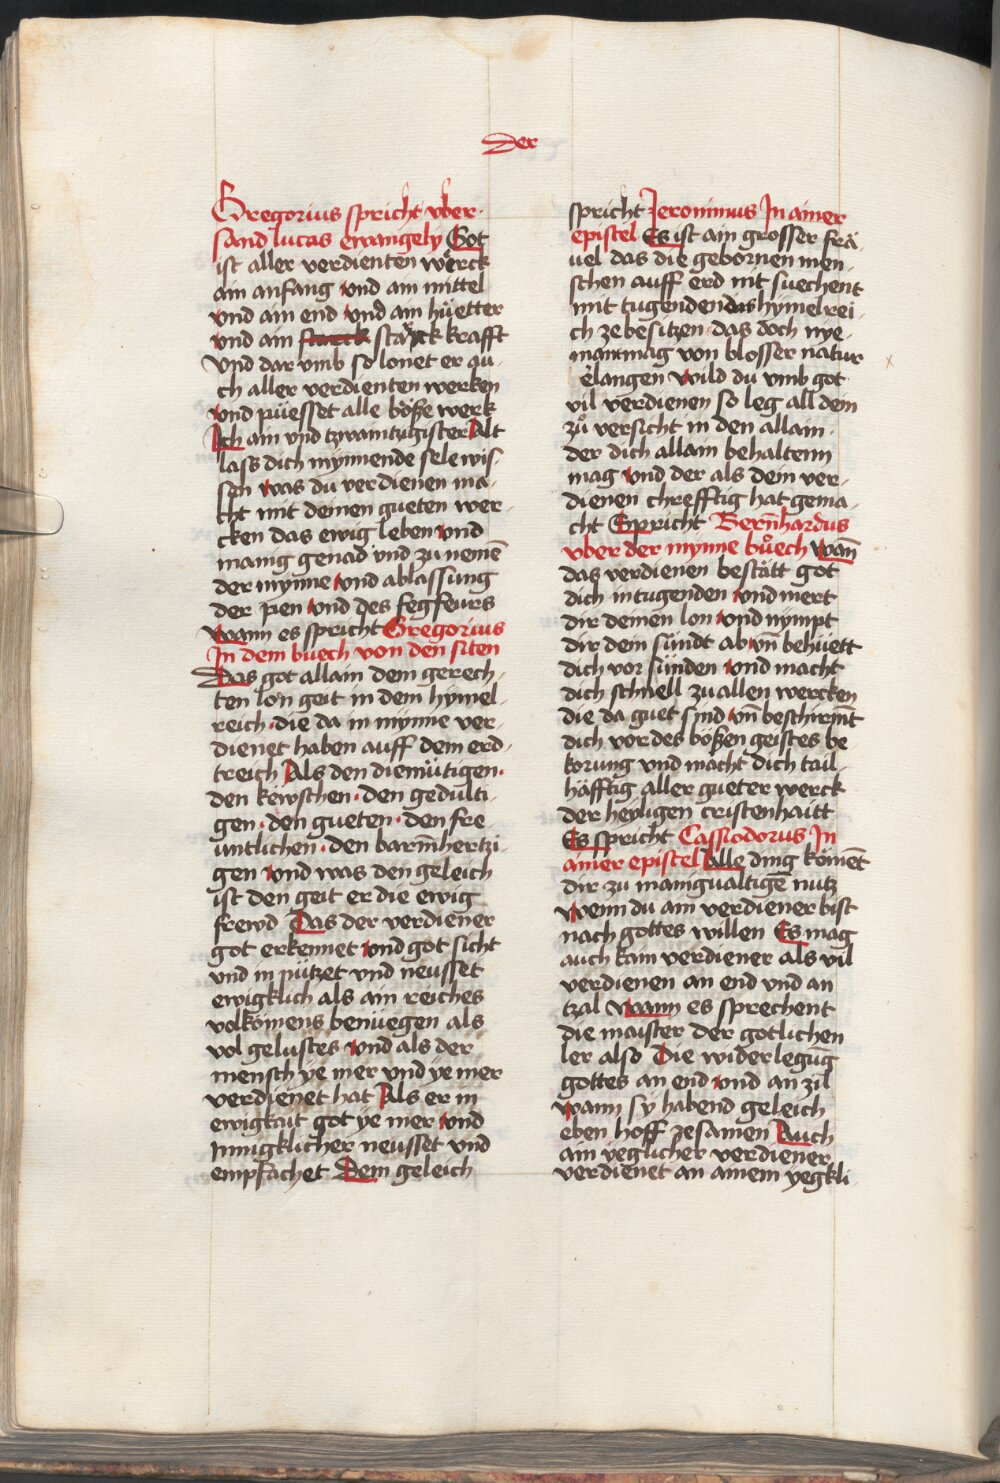 Der
Gregorius spricht vber
sand lucas ewangely Got
ist aller verdienten werck
ain anfang vnd ain mittel
vnd ain end vnd ain hüetter
vnd ain starck krafft
vnd dar vmb so lonet er au
ch aller verdienten werken
vnd püesset alle böße werk
Ich ain vnd tzwaintzigister Alt
lass dich mynnende sele wis
sen was du verdienen ma
cht mit deinen gueten wer
cken das ewig leben vnd
manig genad vnd zu nemē
der mynne vnd ablassung
der pen vnd des fegfeurs
wann es spricht Gregorius
In dem buech von den siten
Das got allain dem gerech
ten lon geit in dem hymel
reich · die da in mynne ver
dienet haben auff dem erd
treich Als den diemütigen ·
den kewschen · den gedulti
gen · den gueten · den fre
untlichen · den barm̄hertzi
gen vnd was den geleich
ist den geit er die ewig
frewd Das der verdiener
got erkennet vnd got sicht
vnd in nutzet vnd neusset
ewigklich als ain reiches
volkomens benüegen als
vol gelustes vnd als der
mensch ye mer vnd ye mer
verdienet hat Als er in
ewigkait got ye mer vnd
Innigklicher neusset vnd
empfachet Dem geleich
spricht Jeronimus In ainer
epistel Es ist ain grosser frä
uel das die gebornen men
schen auff erd nit suechent
mit tugenden das hymelrei
ch ze besitzen das doch nye
mant mag von blosser natur
erlangen wild du vmb got
vil verdienen so leg all dein
zů versicht in den allain
der dich allain behaltenn
mag vnd der als dein ver
dienen chrefftig hat gema
cht Spricht Bern̄hardus
vber der mynne bůech wan̄
das verdienen bestätt got
dich in tugenden vnd mert
dir deinen lon vnd nympt
dir dein sündt ab vn̄ behüett
dich vor sünden vnd macht
dich schnell zu allen wercken
die da guet sind vn̄ beschirm̄t
dich vor des bößen geistes be
korung vnd macht dich tail
häfftig aller gueter werck
der heyligen cristenhaitt
Es spricht Cassiodorus In
ainer epistel Alle ding kömēt
dir zu manigualtigē nutz
wenn du ain verdiener bist
nach gottes willen Es mag
auch kain verdiener als vil
verdienen an end vnd an
tzal wann es sprechent
die maister der gotlichen
ler also Die widerlegūg
gottes an end vnd an zil
wann sy habend geleich
eben hoff zesamen Auch
ain yeglicher verdiener
verdienet an ainem yegkli